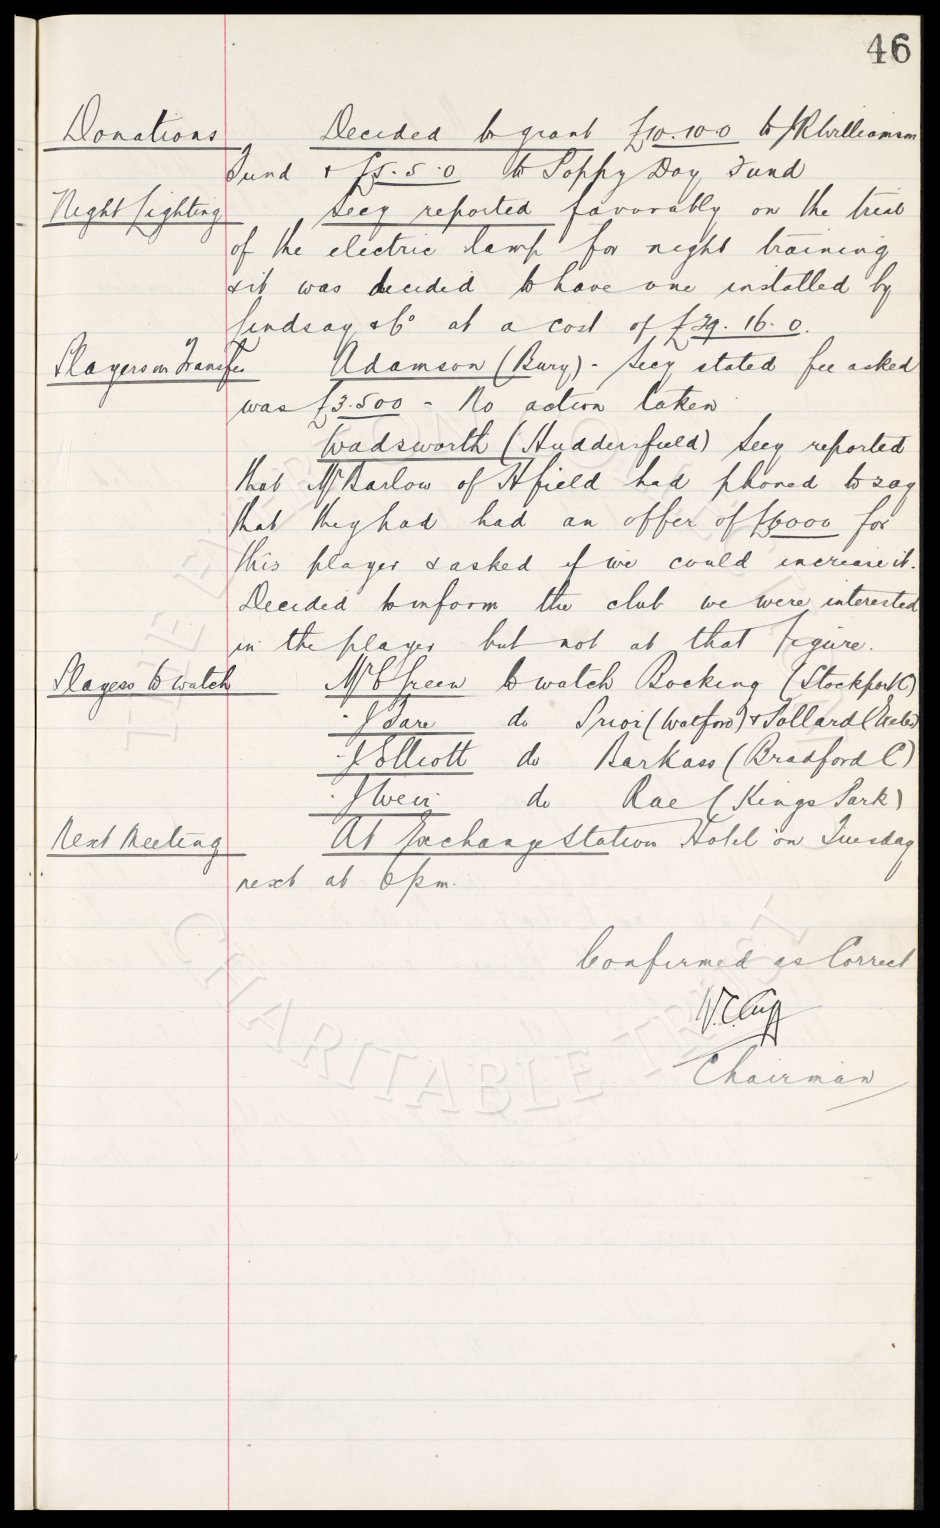 46
Donations Decided to grant £10.10.0 to J R Williamson
Fund & £5.5.0 to Poppy Day Fund
Night Lighting Secy reported favorably on the trial
of the electric lamp for night training
& it was decided to have one installed by
Lindsay & Co at a cost of £39.16.0.
Players on Transfer Adamson (Bury) - Secy stated fee asked
was £3.500 - No action taken
Wadsworth (Huddersfield) Secy reported
that Mr Barlow of Hfield had phoned to say
that they had had an offer of £6000 for
this player & asked if we could increase it.
Decided to inform the club we were interested
in the player but not at that figure.
Players to watch Mr C Green to watch Bocking (Stockport C)
" J Fare do Prior (Watford) & Pollard (Exeter)
" J Elliott do Barkass (Bradford C)
" J Weir do Rae (Kings Park)
Next Meeting At Exchange Station Hotel on Tuesday
next at 6 pm.
Confirmed as Correct
W.C. Cuff
Chairman
THE EVERTON COLLECTION
CHARITABLE TRUST